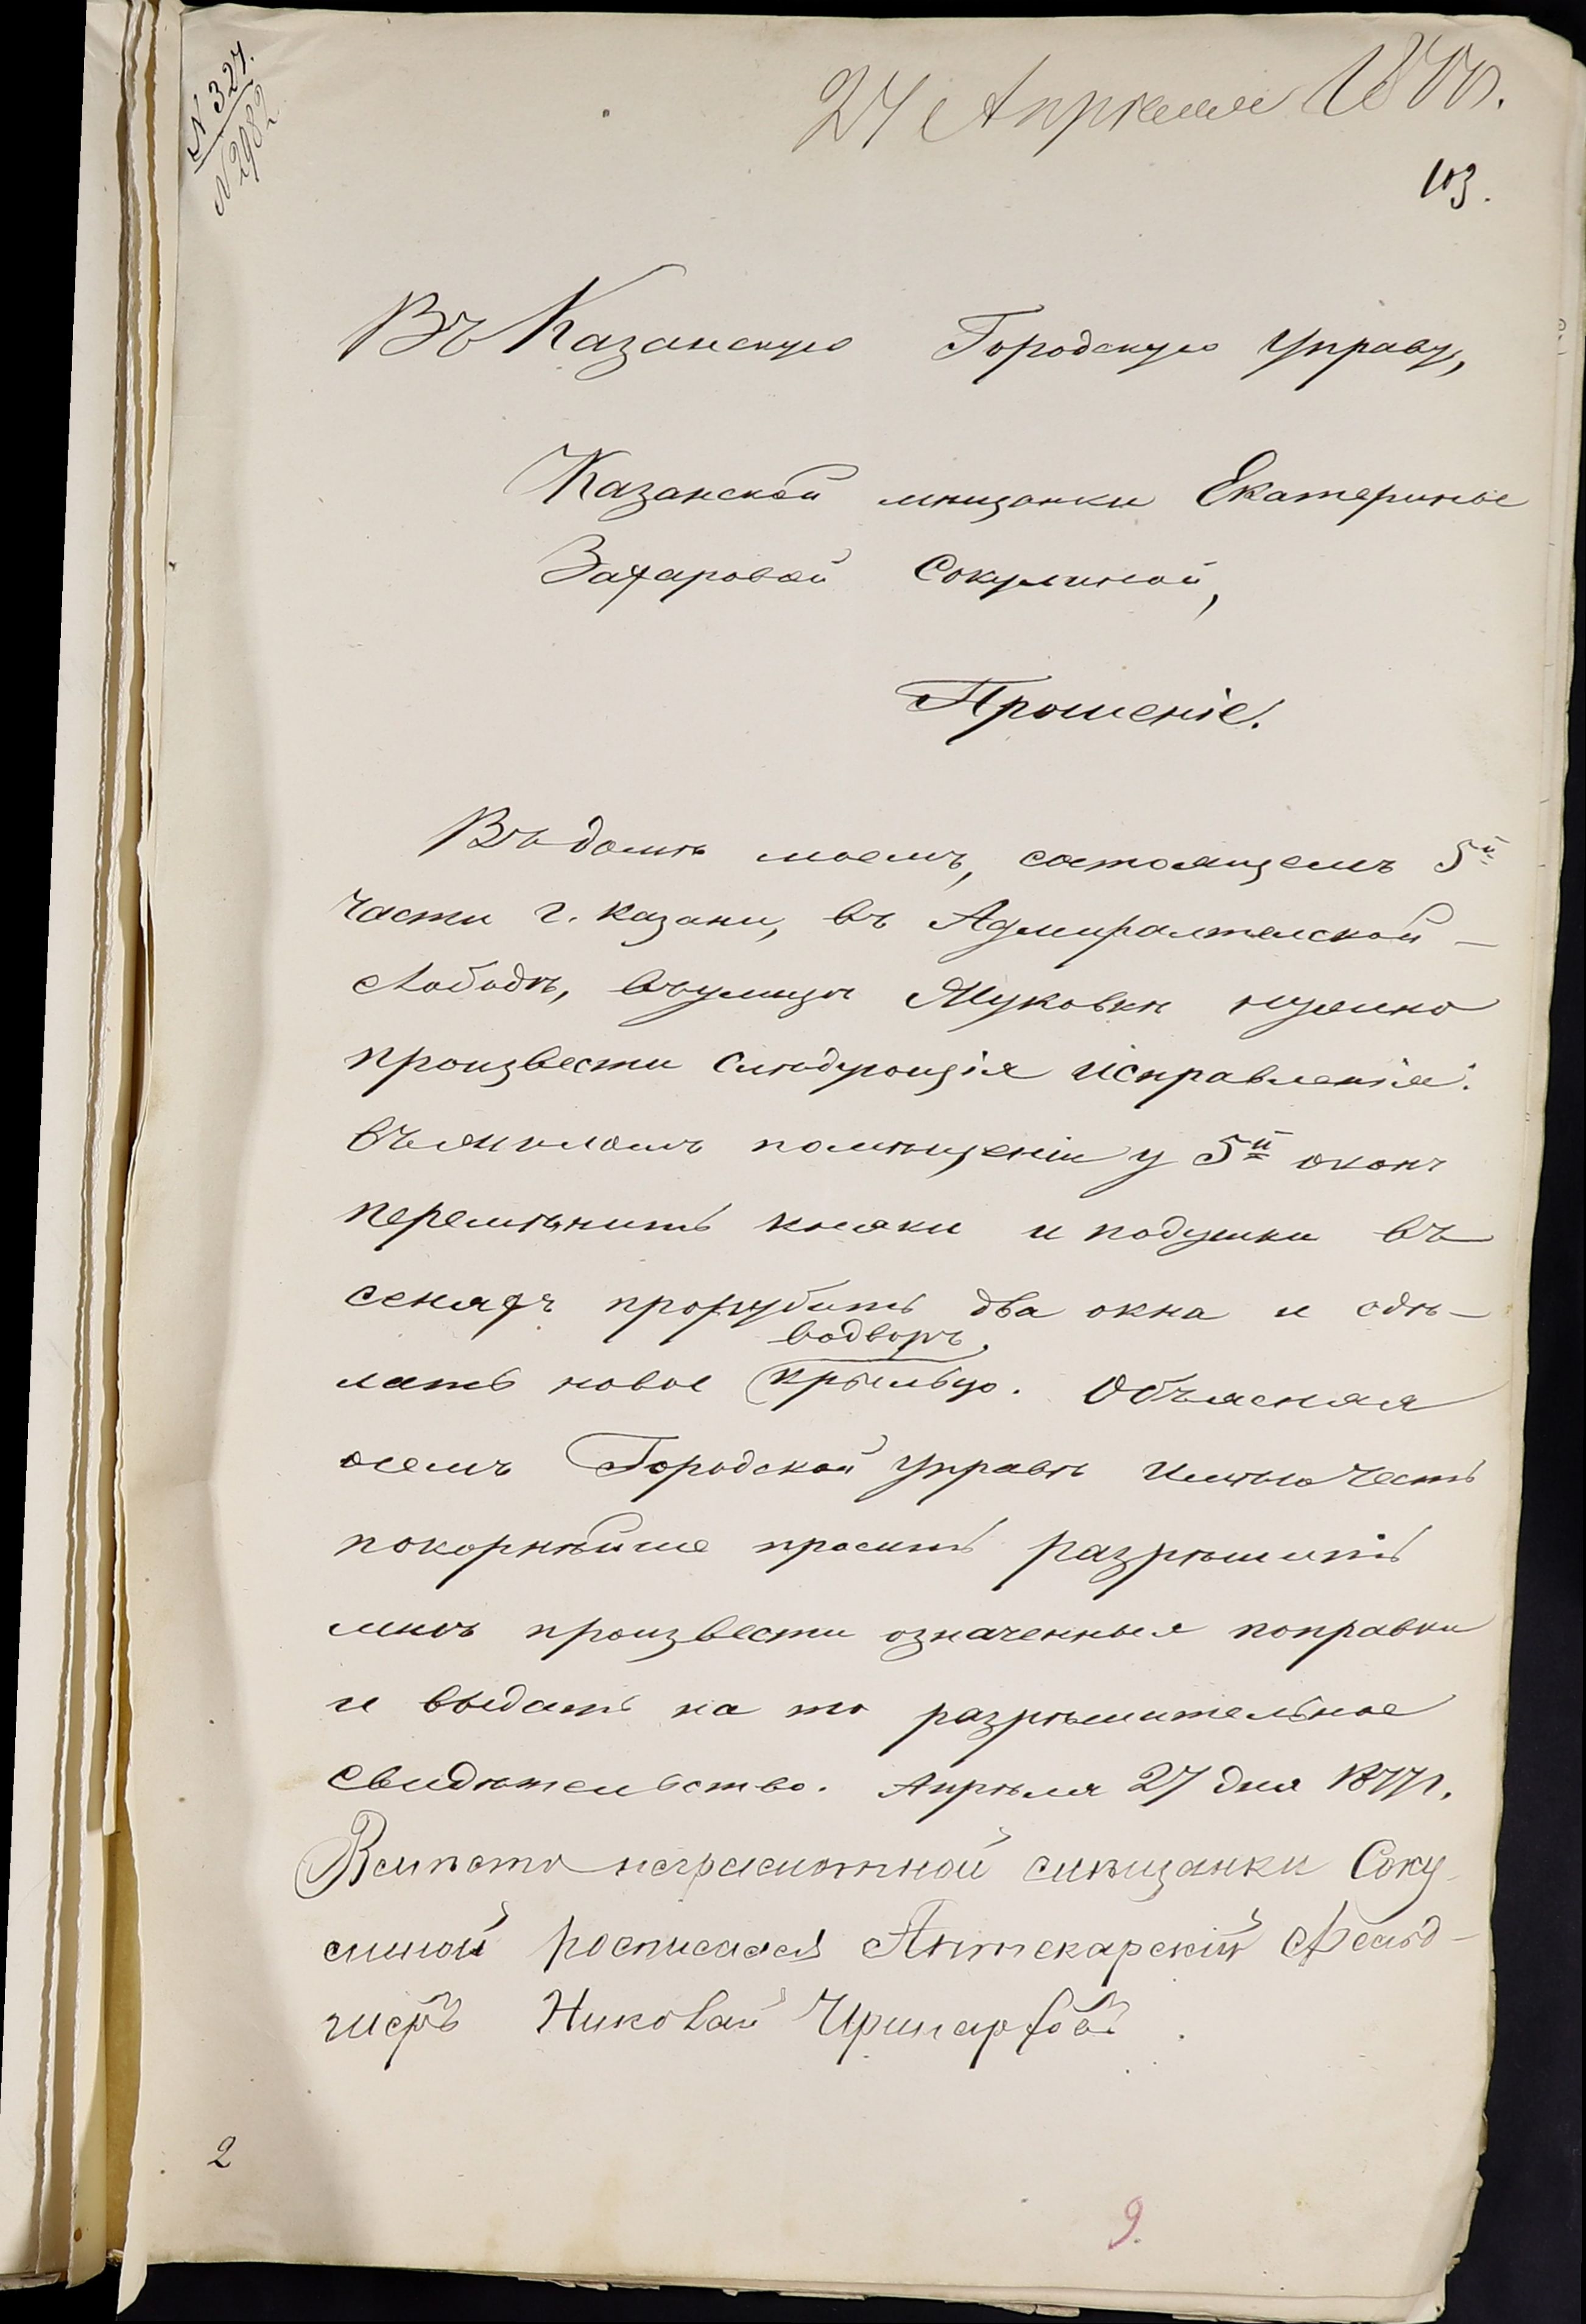 N 324.
N 2982
27 Апрѣля 1877г.
103.
Въ Казанскую Городскую Управу,
Казанской мѣщанки Екатерины
Захаровой Сокулиной,
Прошеніе.
Въ домѣ моемъ, состоящемъ 5й
части г. Казани, въ Адмиралтелской
слободѣ, въ улицѣ Муковкѣ нужно
произвести слюдующія исправленія:
въ жиломъ помѣщеніи у 5й оконъ
перемѣнить косяки и подушки въ
сеняхъ прорубить два окна и сдѣ-
водворъ
лать новое крыльцо. Объясняя
о семъ Городской Управѣ имѣю честь
покорнѣйше просить разрѣшить
мнѣ произвести означенныя поправки
и выдать на то разрѣшительное
свидѣтельство. Апрѣля 27 дня 1877г.
Вмѣсто неграмотной мѣщанки Соку
линой росписался Аптекарскій Фельд-
шеръ Николай
2
9.